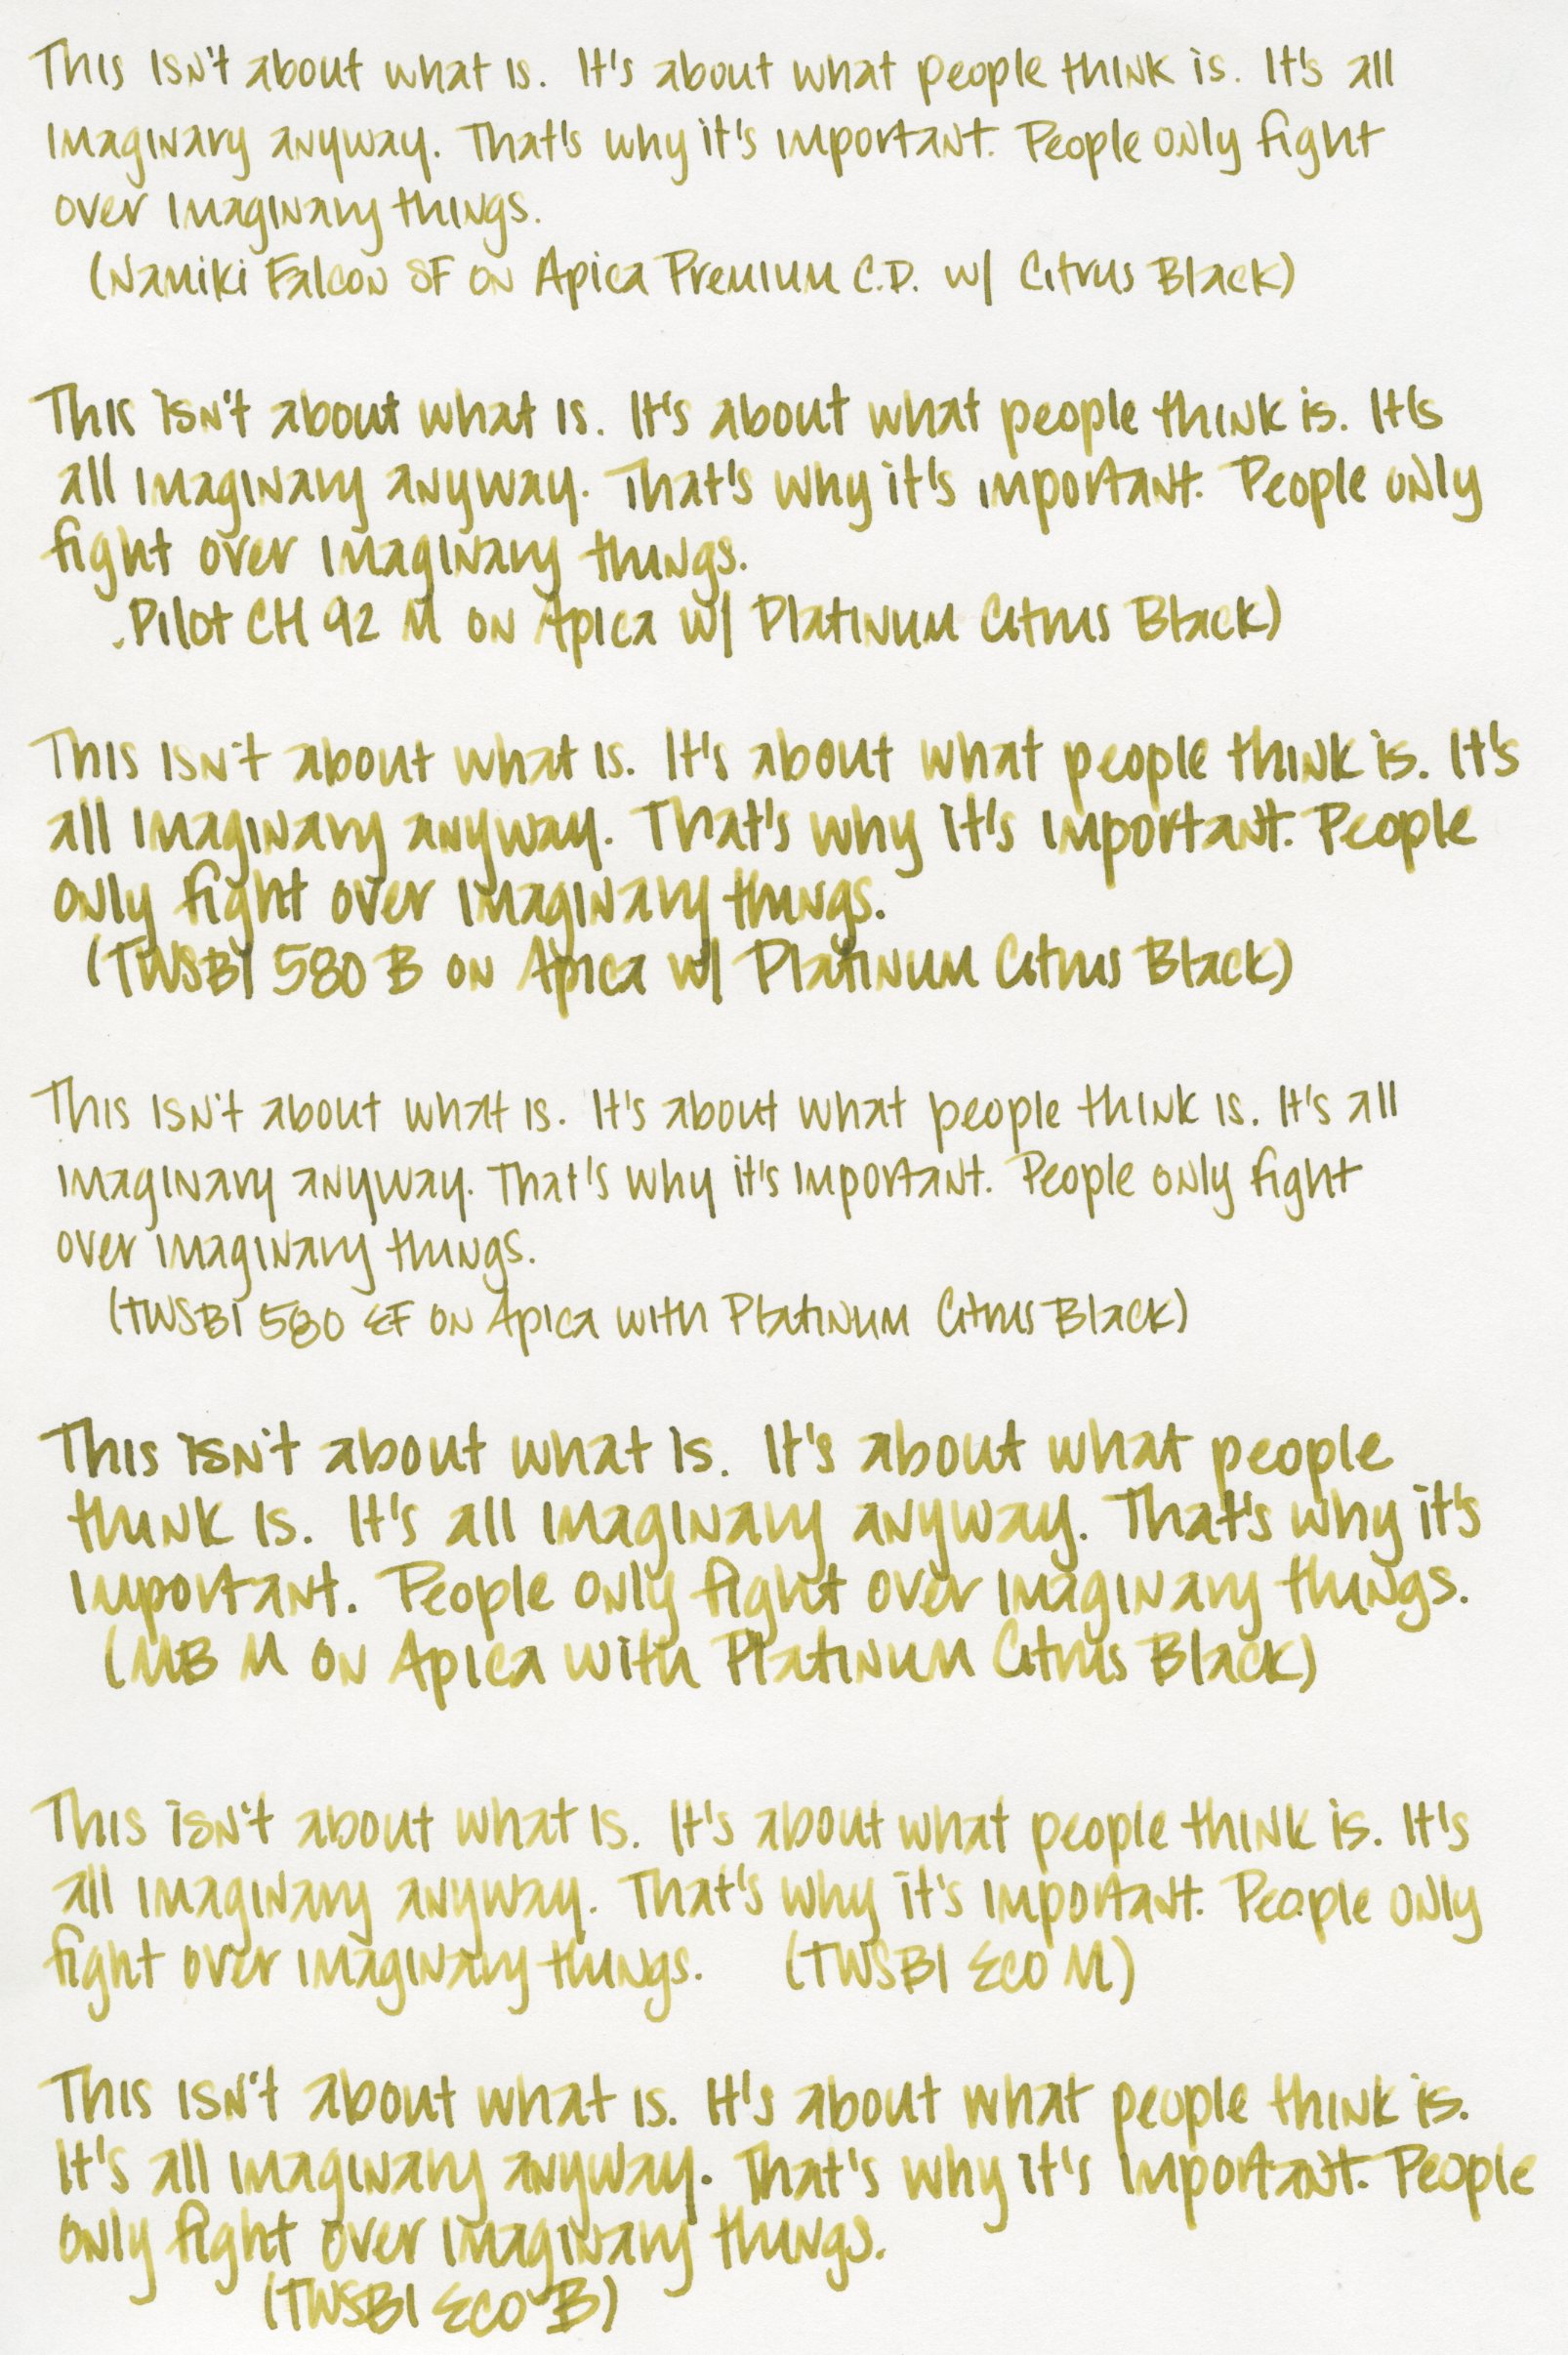 This isn't about what is. It's about what people think is. It's all
imaginary anyway. That's why it's important. People only fight
over imaginary things.
(Namiki Falcon SF on Apica Premium C.D. w/ Citrus Black)
This isn't about what is. It's about what people think is. It's
all imaginary anyway. That's why it's important. People only
fight over imaginary things.
.Pilot CH 92 M on Apica w/ Platinum Citrus Black)
This isn't about what is. It's about what people think is. It's
all imaginary anyway. That's why it's important. People
only fight over imaginary things.
(TWSBI 580 B on Apica w/ Platinum Citrus Black)
This isn't about what is. It's about what people think is. It's all
imaginary anyway. That's why it's important. People only fight
over imaginary things.
(TWSBI 580 EF on Apica with Platinum Citrus Black)
This isn't about what is. It's about what people
think is. It's all imaginary anyway. That's why it's
important. People only fight over imaginary things.
(MB M on Apica with Platinum Citrus Black)
This isn't about what is. It's about what people think is. It's
all imaginary anyway. That's why it's important. People only
fight over imaginary things. (TWSBI Eco M)
This isn't about what is. It's about what people think is.
It's all imaginary anyway. That's why it's important. People
only fight over imaginary things.
(TWSBI Eco B)